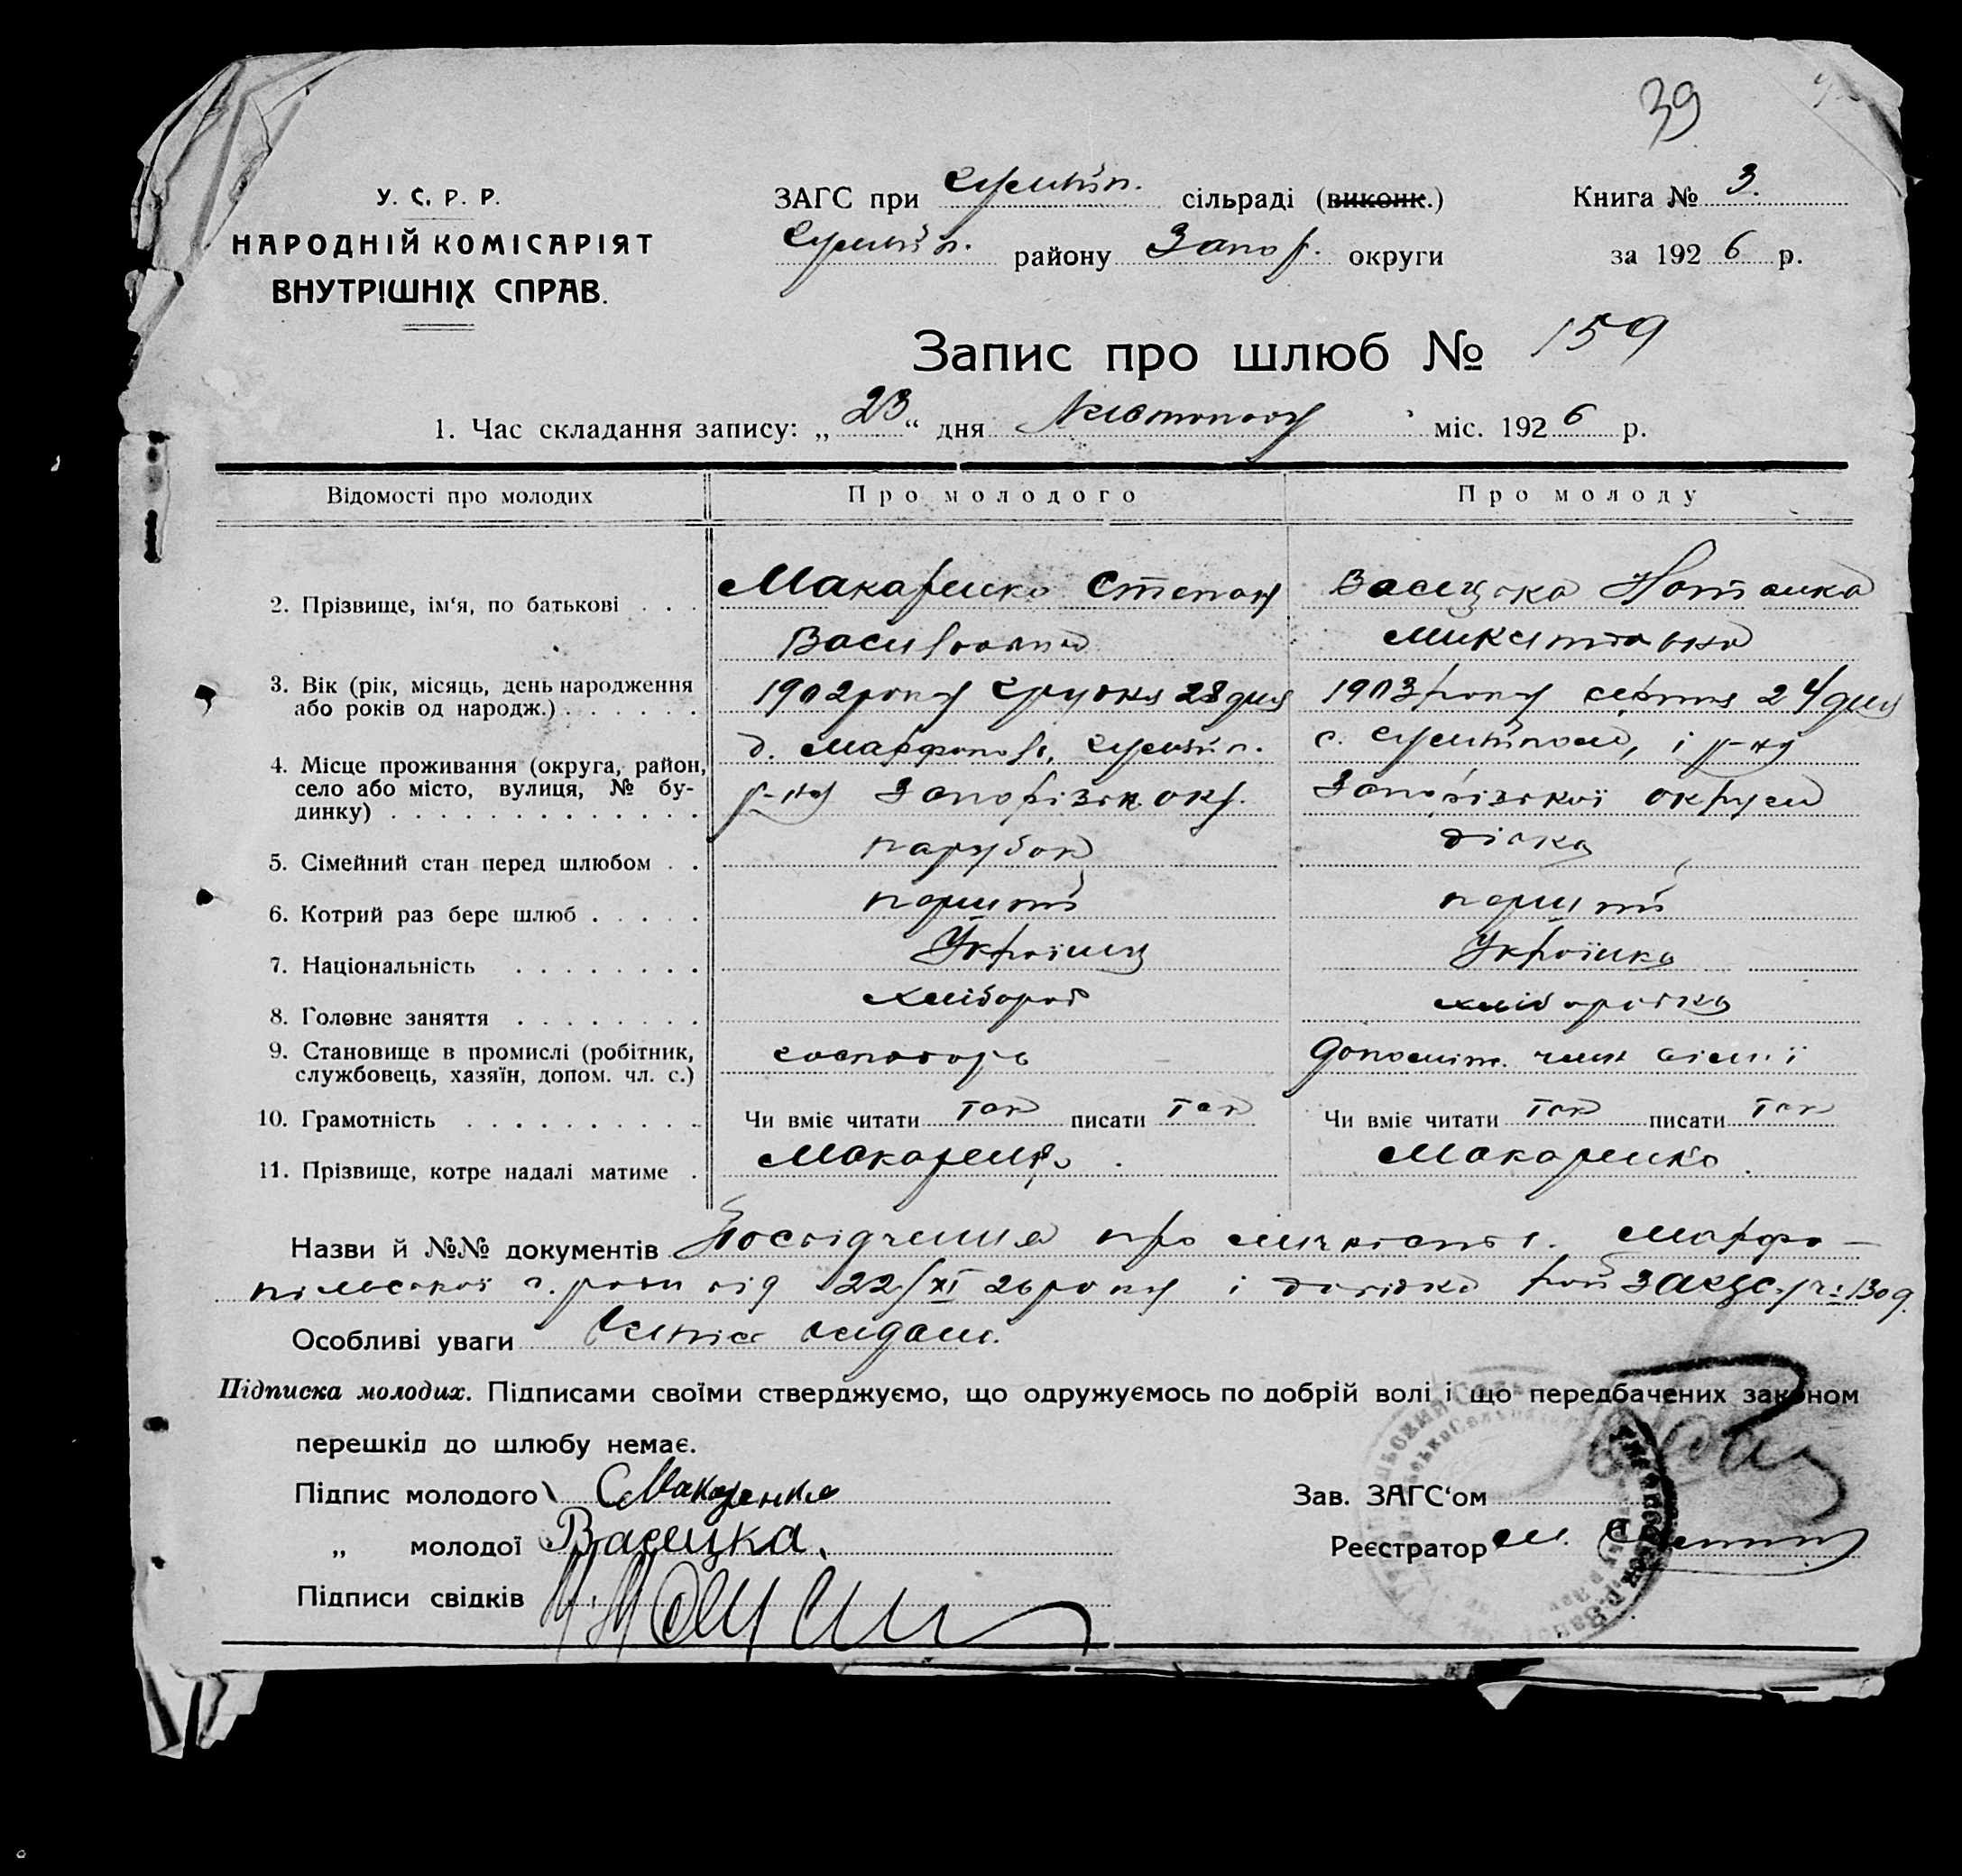 39
У. С. Р. Р.
НАРОДНІЙ КОМІСАРІЯТ
ВНУТРІШНІХ СПРАВ.
ЗАГС при Гуляйп. сільраді (виконк.)
Гуляйп. району Запор. округи
Книга № 3.
за 1926 р.
Запис про шлюб № 159
1. Час складання запису: „23“ дня Листопаду міс. 1926 р.
Відомості про молодих
Про молодого
Про молоду
2. Прізвище, ім‘я, по батькові
Макаренко Степан
Васильович
Васецька Наталка
Микитовна
3. Вік (рік, місяць, день народження
або років од народж.)
1902 року Грудня 28 дня
1903 року серпня 24 дня
4. Місце проживання (округа, район,
село або місто, вулиця, № бу-
динку)
с. Марфопіль, Гуляйп.
р-ну Запорізьк. окр.
с. Гуляйполе, і р-ну
Запорізької округи
5. Сімейний стан перед шлюбом
парубок
дівка
6. Котрий раз бере шлюб
перший
перший
7. Національність
Українец
Українка
8. Головне заняття
хлібороб
хліборобка
9. Становище в промислі (робітник,
службовець, хазяїн, допом. чл. с.)
господарь
допоміж. член сім'ї
10. Грамотність
Чи вміє читати так писати так
Чи вміє читати так писати так
11. Прізвище, котре надалі матиме
Макаренко.
Макаренко.
Назви й №№ документів Посвідчення про Марфо-
пільської с. ради від 22/XI 26 року і довідка рай ЗАГС
Особливі уваги видано.
Підписка молодих. Підписами своїми стверджуємо, що одружуємось по добрій волі і що передбачених законом
перешкід до шлюбу немає.
Підпис молодого СМакаренко
„ молодої Васецка.
Підписи свідків
Зав. ЗАГС‘ом
Реєстратор